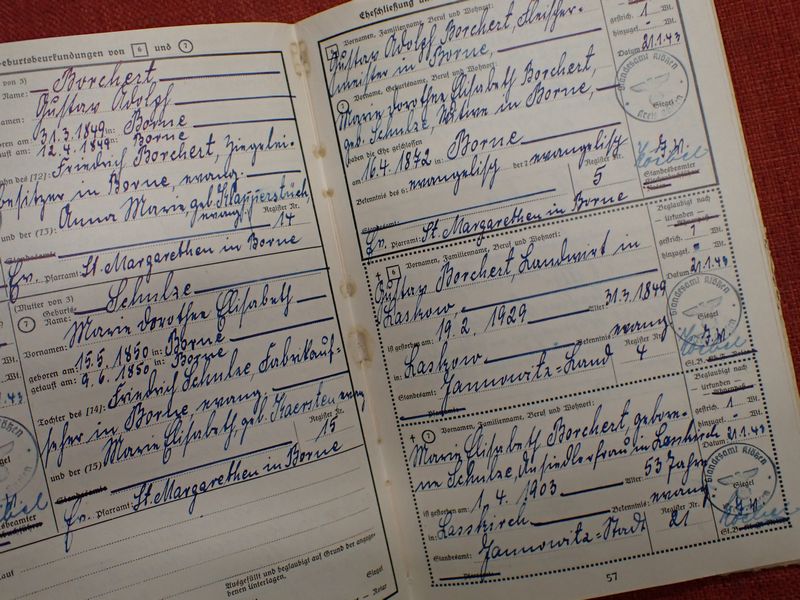 Geburtsbeurkundungen von 6 und 7
Borchert,
Gustav Adolf
31.3.1849 in: Borne
12.4.1849 in: Borne
Friedrich Borchert, Ziegelei-
besitzer in Borne, evang.
und der (13): Anna Marie, geb. Klapperstück,
evang. Register Nr.
14
Ev. Pfarramt: St. Margarethen in Borne
(Mutter von 3)
7 Name: Schulze
Vornamen: Marie Dorothee Elisabeth
geboren am 15.5.1850 in: Borne
getauft am 9.6.1850 in: Borne
Tochter des (14): Friedrich Schulze, Fabrikauf-
seher in Borne, evang.
und der (15) Marie Elisabeth, geb. Kaersten evang
Register Nr.
15
Ev. Pfarramt: St. Margarethen in Borne
Ausgefüllt und beglaubigt auf Grund der angege-
benen Unterlagen.
Siegel
Eheschließung
6 Vornamen, Familienname, Beruf und Wohnort:
Gustav Adolf Borchert, Fleischer-
meister in Borne,
7 Vorname, Geburtsname, Beruf und Wohnort:
Marie Dorothee Elisabeth Borchert,
geb. Schulze, Witwe in Borne,
haben die Ehe geschlossen
am 16.4.1872 in: Borne
Bekenntnis des 6: evangelisch der 7 evangelisch
Register Nr.
5
Ev. Pfarramt: St. Margarethen in Borne
gestrich. 1 Wt.
hinzugef. Wt.
Datum 21.1.43
Siegel
Standesbeamter
6 Vornamen, Familienname, Beruf und Wohnort:
Gustav Borchert, Landwirt in
Laskow,
Alter 31.3.1849
ist gestorben am 19.2.1929
in: Laskow Bekenntnis evang
Standesamt: Jannowitz=Land Register Nr. 4
Beglaubigt nach
urkunden
gestrich. 1 Wt.
hinzugef. Wt.
Datum 21.1.43
Siegel
7 Vornamen, Familienname, Beruf und Wohnort:
Marie Elisabeth Borchert, gebore-
ne Schulze, Ansiedlerfrau in Lasskirch
ist gestorben am 1.4.1903 Alter 53 Jahre
in: Lasskirch Bekenntnis evang
Standesamt: Jannowitz=Stadt Register Nr. 21
Beglaubigt nach
urkunden
gestrich. 1 Wt.
hinzugef. Wt.
Datum 21.1.43
Siegel
57